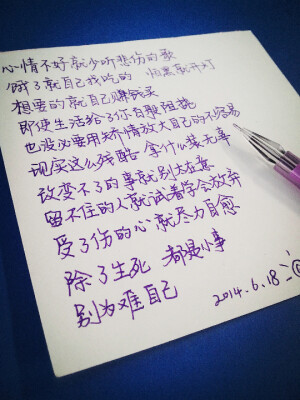 心情不好就少听悲伤的歌
饿了就自己找吃的 怕黑就开灯
想要的就自己赚钱买
即使生活给了你百般阻挠
也没必要用矫情放大自己的不容易
现实这么残酷 拿什么装无辜
改变不了的事就别太在意
留不住的人就试着学会放弃
受了伤的心就尽力自愈
除了生死 都是小事
别为难自己
2014.6.18